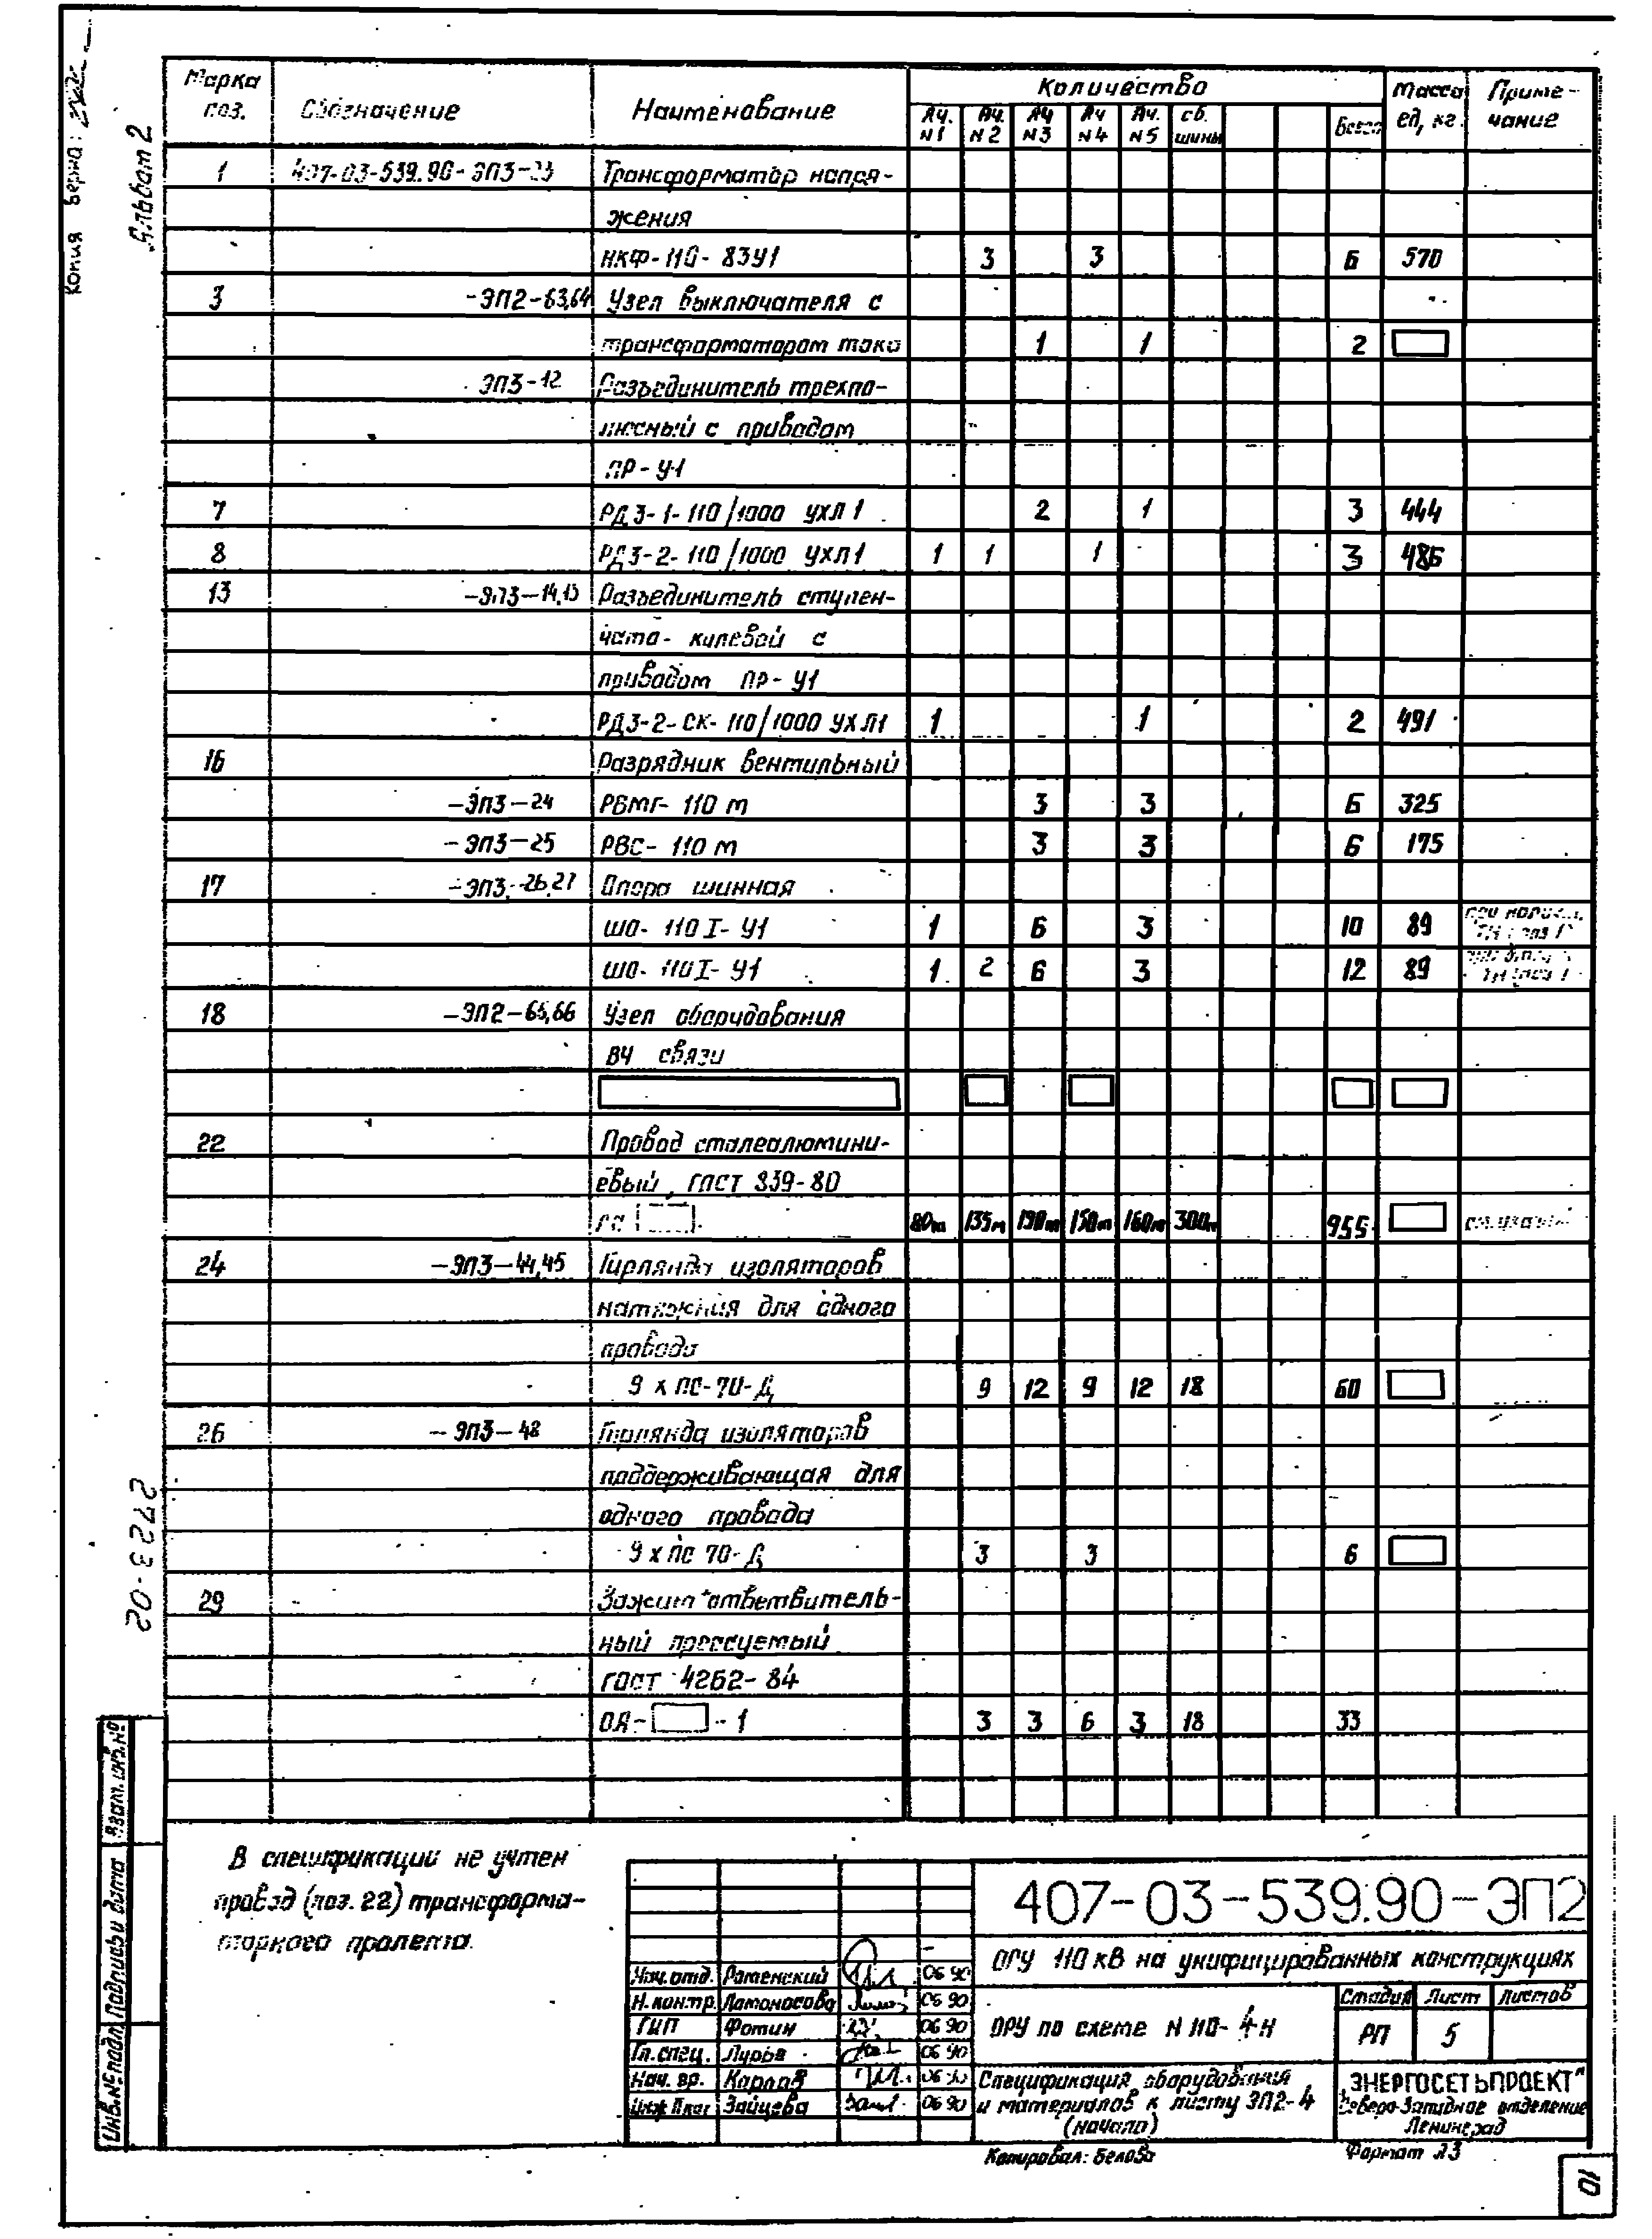 Копия верна:
Альбом 2
Марка поз. Обозначение Наименование Количество Масса ед, кг. Примечание
Яч. N1 Яч. N2 Яч N3 Яч N4 Яч. N5 сб. шины Всего
1 407-03-539.90-ЭП3-23 Трансформатор напря-
жения
НКФ-110-83У1 3 3 6 570
3 -ЭП2-63,64 Узел выключателя с
трансформатором тока 1 1 2
ЭП3-12 Разъединитель трехпо-
люсный с приводом
ПР-У1
7 РДЗ-1-110/1000 УХЛ1 2 1 3 444
8 РДЗ-2-110/1000 УХЛ1 1 1 1 3 486
13 -ЭП3-14,15 Разъединитель ступен-
чато-килевой с
приводом ПР-У1
РДЗ-2-СК-110/1000 УХЛ1 1 1 2 491
16 Разрядник вентильный
-ЭП3-24 РВМГ-110 м 3 3 6 325
-ЭП3-25 РВС-110 м 3 3 6 175
17 -ЭП3-26,27 Опора шинная
ШО-110 I-У1 1 6 3 10 89
ШО-110 I-У1 1 2 6 3 12 89
18 -ЭП2-65,66 Узел оборудования
ВЧ связи
22 Провод сталеалюмини-
евый, ГОСТ 839-80
80м 135м 190м 150м 160м 300м 955
24 -ЭП3-44,45 Гирлянда изоляторов
натяжная для одного
провода
9 х ПС-70-Д 9 12 9 12 18 60
26 -ЭП3-48 Гирлянда изоляторов
поддерживающая для
одного провода
9 х ПС 70-Д 3 3 6
29 Зажим ответвитель-
ный прессуемый
ГОСТ 4262-84
ОА- -1 3 3 6 3 18 33
2723-02
Инв. № подл. Подпись и дата Взам. инв. №
В спецификации не учтен
провод (поз. 22) трансформа-
торного пролета.
407-03-539.90-ЭП2
ОРУ 110 кВ на унифицированных конструкциях
Нач. отд. Роменский 06 90
Н. контр. Ломоносова 06 90
ГИП Фотин 06 90
Гл. спец. Лурье 06 90
Нач. гр. Карпов 06 90
Инж. II кат Зайцева 06 90
ОРУ по схеме N 110-4Н
Стадия Лист Листов
РП 5
Спецификация оборудования
и материалов к листу ЭП2-4
(начало)
"ЭНЕРГОСЕТЬПРОЕКТ"
Северо-Западное отделение
Ленинград
Копировал: Белова Формат А3
10